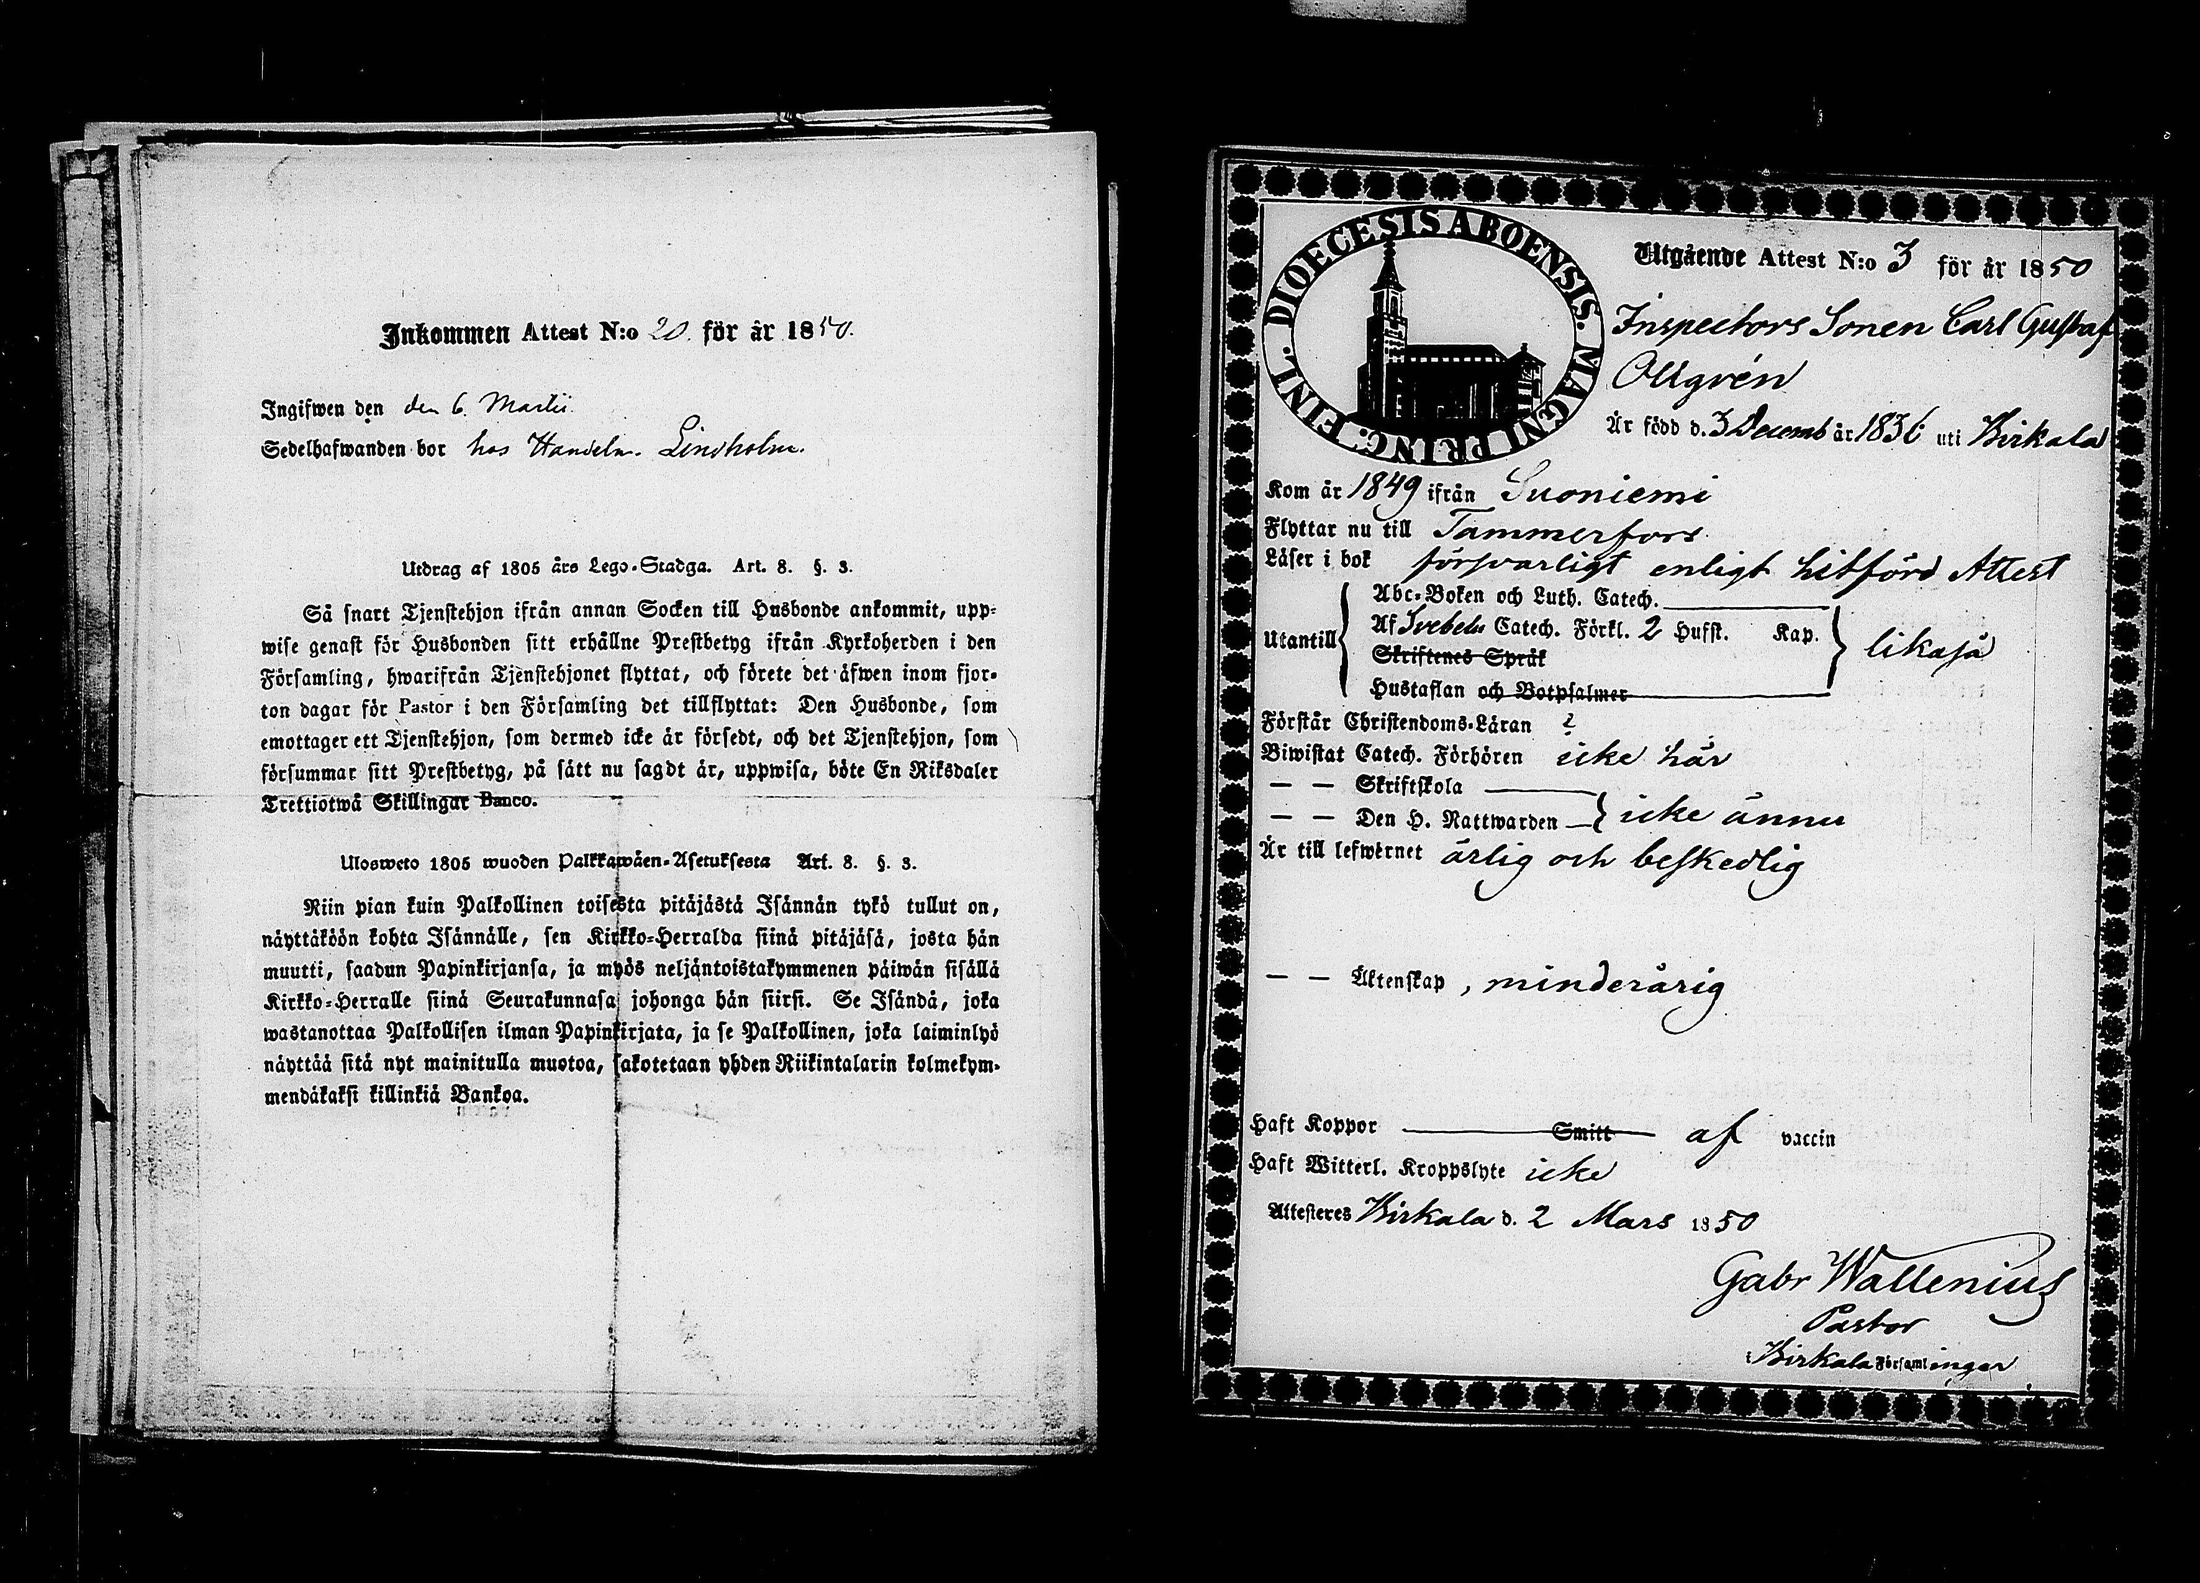 Inkommen Attest N:o 20. för år 1850.
Ingifwen den den 6. Martii.
Sedelhafwanden bor hos Handelm. Lindholm.
Utdrag af 1805 års Lego-Stadga. Art. 8. §. 3.
Så snart Tjenstehjon ifrån annan Socken till Husbonde ankommit, upp-
wise genast för Husbonden sitt erhållne Prestbetyg ifrån Kyrkoherden i den
Församling, hwarifrån Tjenstehjonet flyttat, och förete det äfwen inom fjor-
ton dagar för Pastor i den Församling det tillflyttat: Den Husbonde, som
emottager ett Tjenstehjon, som dermed icke är försedt, och det Tjenstehjon, som
försummar sitt Prestbetyg, på sätt nu sagdt är, uppwisa, böte En Riksdaler
Trettiotwå Skillingar Banco.
Ulosweto 1805 wuoden Palkkawäen-Asetuksesta Art. 8. §. 3.
Niin pian kuin Palkollinen toisesta pitäjästä Isännän tykö tullut on,
näyttäköön kohta Isännälle, sen Kirkko-Herralda siinä pitäjäsä, josta hän
muutti, saadun Papinkirjansa, ja myös neljäntoistakymmenen päiwän sisällä
Kirkko-Herralle siinä Seurakunnasa johonga hän siirsi. Se Isändä, joka
wastanottaa Palkollisen ilman Papinkirjata, ja se Palkollinen, joka laiminlyö
näyttää sitä nyt mainitulla muotoa, sakotetaan yhden Riikintalarin kolmekym-
mendäkaksi killinkiä Bankoa.
DIOECESIS ABOENSIS. MAGNI PRINC. FINL.
Utgående Attest N:o 3 för år 1850
Inspectors Sonen Carl Gustaf
Ollgrén
Är född d. 3 Decemb år 1836 uti Birkala
Kom år 1849 ifrån Suoniemi
Flyttar nu till Tammerfors
Läser i bok försvarligt enligt hitförd Attest
Abc-Boken och Luth. Catech.
Utantill Af Svebelii Catech. Förkl. 2 Hufst. Kap. likaså
Skriftenes Språk
Hustaflan och Botpsalmer
Förstår Christendoms-Läran ?
Biwistat Catech. Förhören icke här
— — Skriftskola
— — Den H. Nattwarden icke ännu
Är till lefwernet ärlig och beskedlig
— — Äktenskap, minderårig
Haft Koppor Smitt af vaccin
Haft Witterl. Kroppslyte icke
Attesteres Birkala d. 2 Mars 1850
Gabr Wallenius
Pastor
i Birkala Församlingar